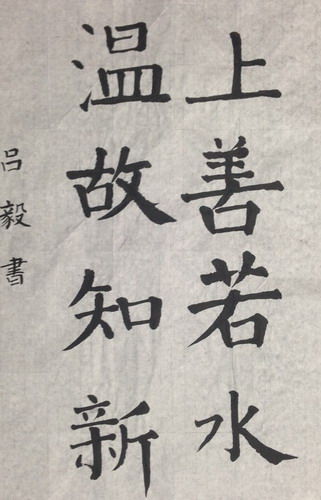 上善若水
温故知新
吕毅書